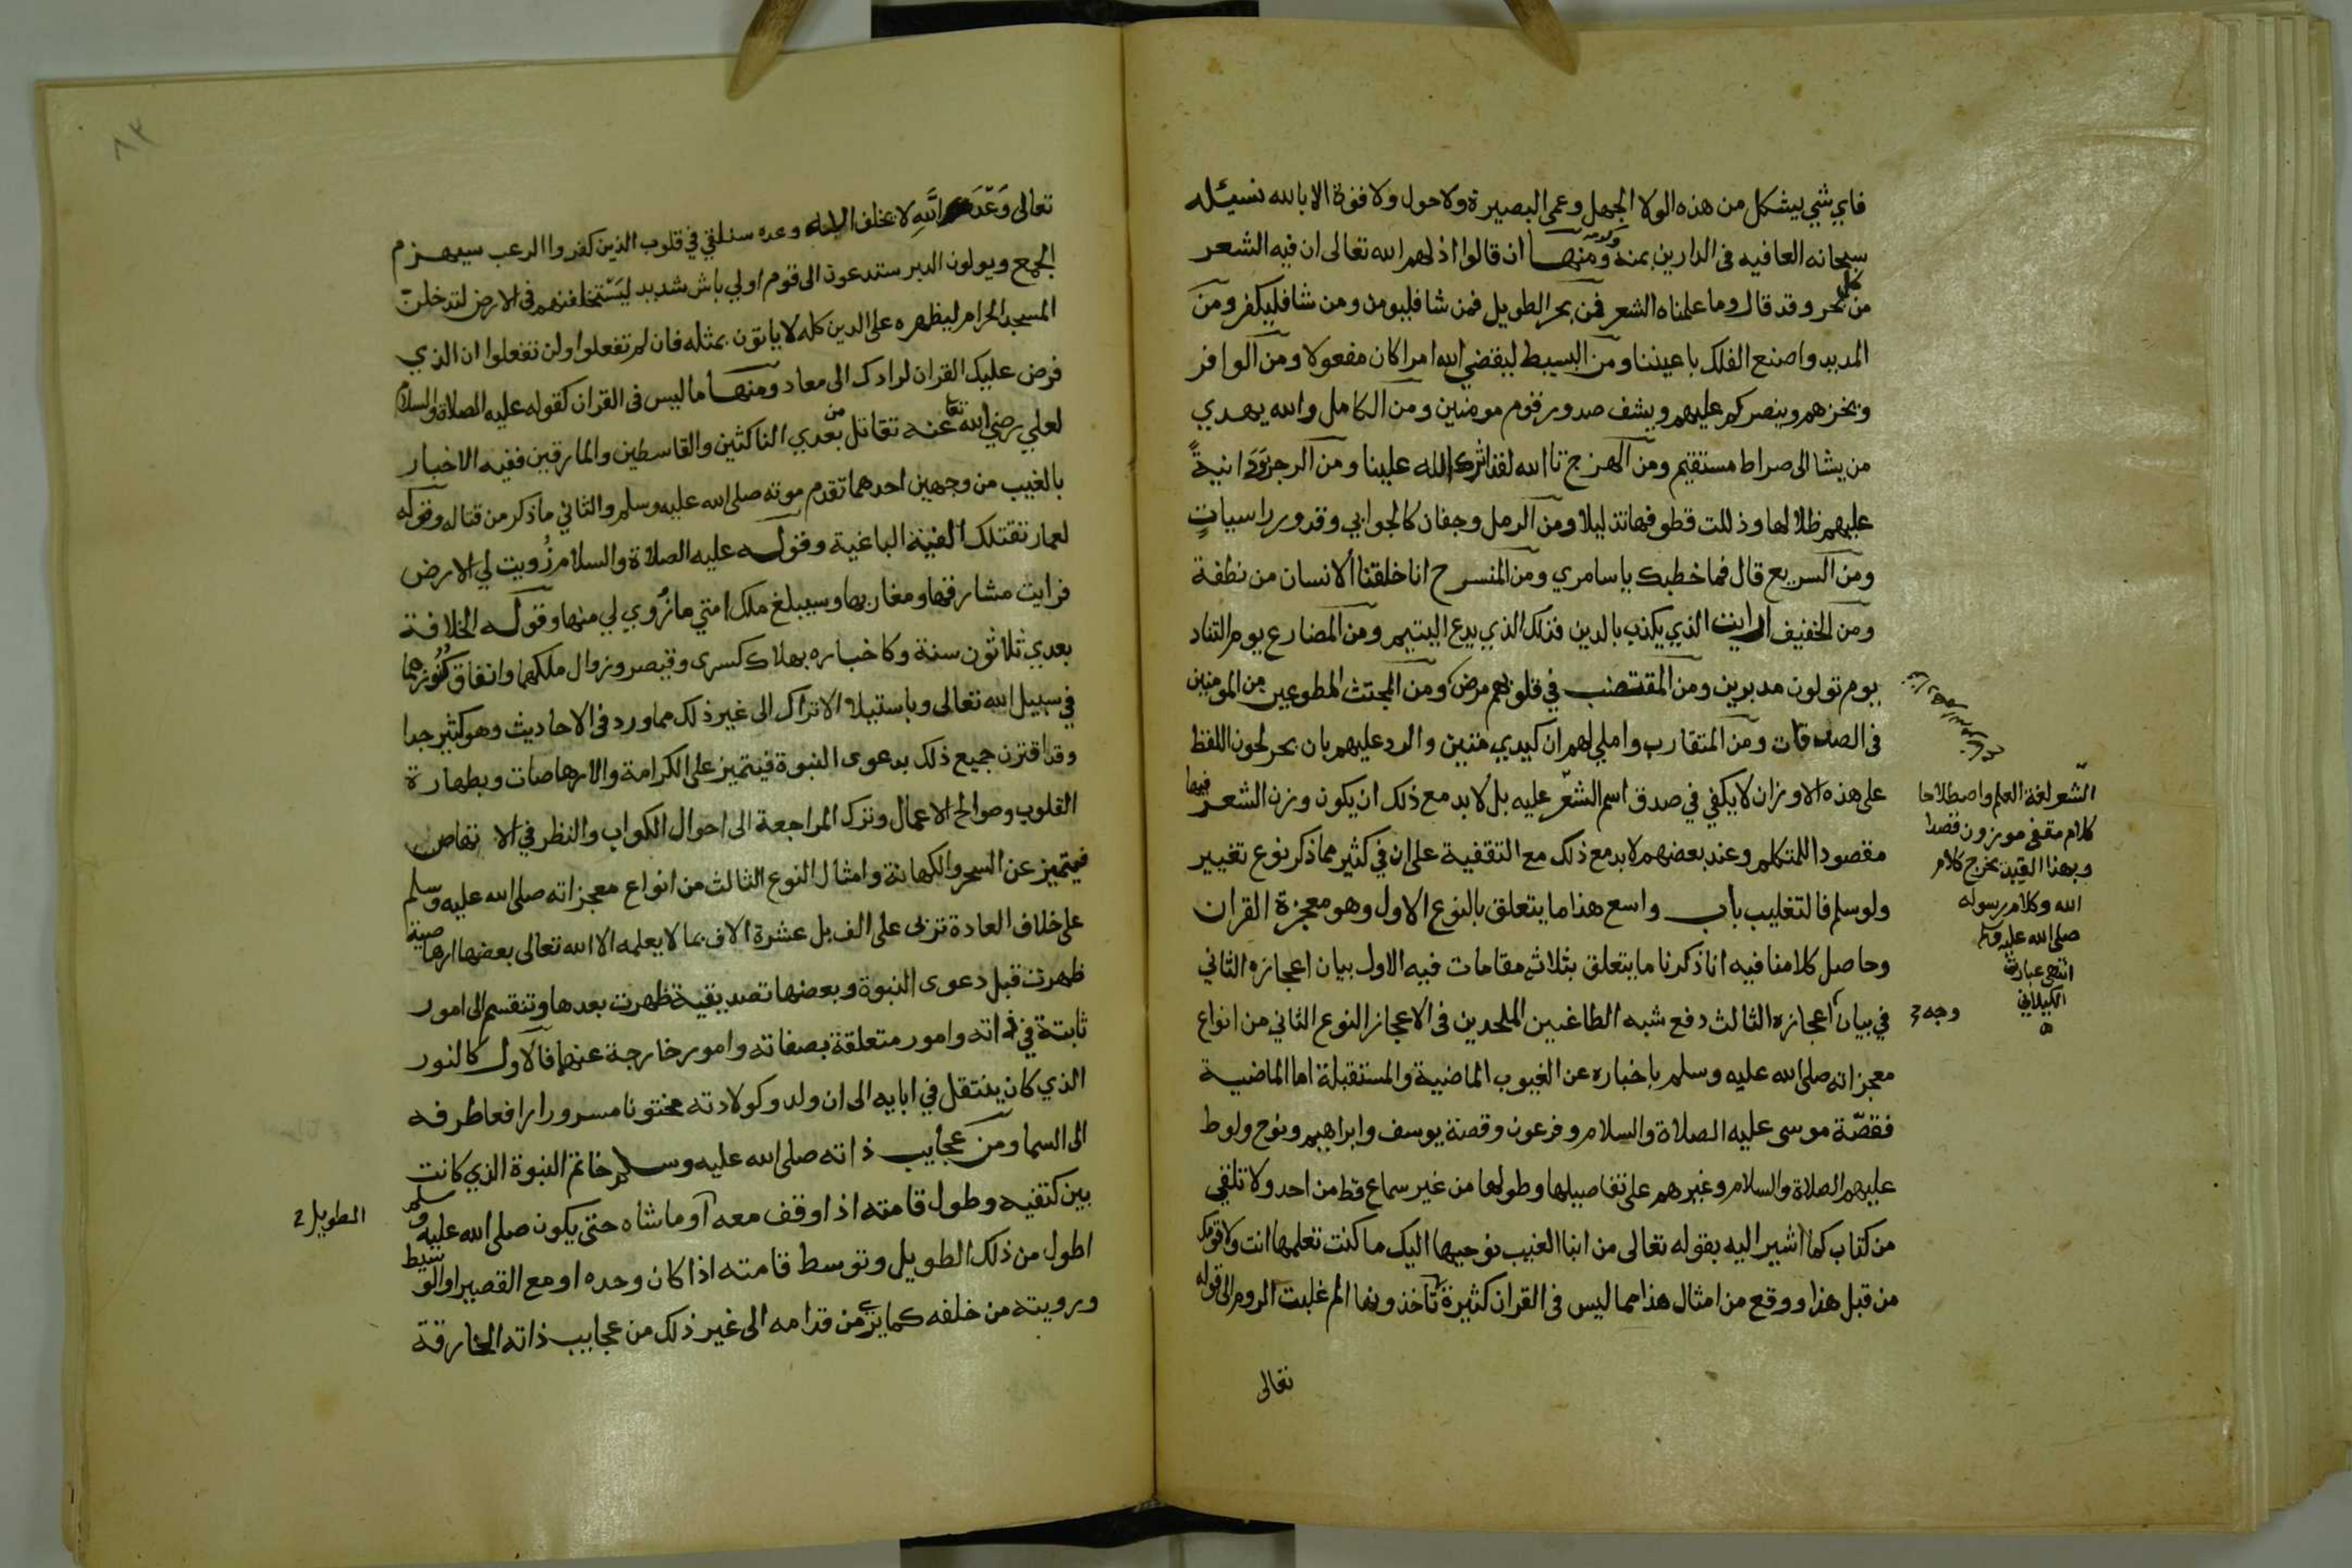 فاي شي يشكل من هذه الولا الجهل وعمى البصيرة ولا حول ولا قوة الا بالله نسيله
سبحانه العافيه في الدارين بمنه وكرمه ومنها ان قالوا اذلهم الله تعالى ان فيه الشعر
من كل بحر وقد قال وما علمناه الشعر فمن بحر الطويل فمن شا فليومن ومن شا فليكفر ومن
المديد واصنع الفلك باعيننا ومن البسيط ليقضي الله امرا كان مفعولا ومن الوافر
ويخزهم وينصركم عليهم ويشف صدور قوم مومنين ومن الكامل والله يهدي
من يشا الى صراط مستقيم ومن الهزج تا الله لقد اثرك الله علينا ومن الرجز ودانيةً
عليهم ظلالها وذللت قطوفها تذليلا ومن الرمل وجفان كالجوابي وقدور راسياتٍ
ومن السريع قال فما خطبك يا سامري ومن المنسرح انا خلقنا الانسان من نطفة
ومن الخفيف ارايت الذي يكذب بالدين فذلك الذي يدع اليتيم ومن المضارع يوم التناد
يوم تولون مدبرين ومن المقتضب في قلوبهم مرض ومن المجتث المطوعين من المومنين
في الصدقات ومن المتقارب واملي لهم ان كيدي متين والرد عليهم بان بحر لحون اللفظ
على هذه الاوزان لا يكفي في صدق اسم الشعر عليه بل لا بد مع ذلك ان يكون وزن الشعر فيها
مقصودا للمتكلم وعند بعضهم لا بد مع ذلك مع التقفية على ان في كثير مما ذكر نوع تغيير
ولو سلم فالتغليب باب واسع هذا ما يتعلق بالنوع الاول وهو معجزة القران
وحاصل كلامنا فيه انا ذكرنا ما يتعلق بثلاث مقامات فيه الاول بيان اعجازه الثاني
في بيان اعجازه الثالث دفع شبه الطاغين الملحدين في الاعجاز النوع الثاني من انواع
معجزاته صلى الله عليه وسلم باخباره عن الغيوب الماضية والمستقبلة اما الماضية
فقصّة موسى عليه الصلاة والسلام وفرعون وقصة يوسف وابراهيم ونوح ولوط
عليهم الصلاة والسلام وغيرهم على تفاصيلها وطولها من غير سماع قط من احد ولا تلقي
من كتاب كما اشير اليه بقوله تعالى من انبا الغيب نوحيها اليك ما كنت تعلمها انت ولا قومك
من قبل هذا ووقع من امثال هذا مما ليس في القران كثيرة الم غلبت الروم الى قوله
تعالى
الشّعر لغة العلم واصطلاحا
كلام مقفى موزون قصدا
وبهذا القيد يخرج كلام
الله وكلام رسوله
صلى الله عليه وسلم
انتهى عبارة
الكيلاني
وجه
٨٣
تعالى وَعْدَ اللهِ لا يخلف الله وعده سنلقي في قلوب الذين كفروا الرعب سيهزم
الجمع ويولون الدبر ستدعون الى قوم اولي باس شديد ليَسْتخلفنهم في الارض لتدخلنّ
المسجد الحرام ليظهره على الدين كله لا ياتون بمثله فان لم تفعلوا ولن تفعلوا ان الذي
فرض عليك القران لرادك الى معاد ومنها ما ليس في القران كقوله عليه الصلاة والسلام
لعلي رضي الله تعا عنه تقاتل من بعدي الناكثين والقاسطين والمارقين ففيه الاخبار
بالغيب من وجهين احدهما تقدم موته صلى الله عليه وسلم والثاني ما ذكر من قتاله وقوله
لعمار تقتلك الفئة الباغية وقوله عليه الصلاة والسلام زُويت لي الارض
فرايت مشارقها ومغاربها وسيبلغ ملك امتي ما زُوي لي منها وقوله الخلافة
بعدي ثلاثون سنة وكاخباره بهلاك كسرى وقيصر وزوال ملكهما وانفاق كنُوزهما
في سبيل الله تعالى وباستيلا الاتراك الى غير ذلك مما ورد في الاحاديث وهو كثير جدا
وقد اقترن جميع ذلك بدعوى النبوة فيتميز على الكرامة والارهاصات وبطهارة
القلوب وصوالح الاعمال وترك المراجعة الى احوال الكواب والنظر في الا نقاص
فيتميز عن السحر والكهانة وامثال النوع الثالث من انواع معجزاته صلى الله عليه وسلم
على خلاف العادة تربى على الف بل عشرة الاف بما لا يعلمه الا الله تعالى بعضها ارهاصية
ظهرت قبل دعوى النبوة وبعضها تصديقية ظهرت بعدها وتنقسم الى امور
ثابتة في ذاته وامور متعلقة بصفاته وامور خارجة عنها فالاول كالنور
الذي كان ينتقل في ابايه الى ان ولد وكولادته مختونا مسرورا رافعا طرفه
الى السما ومن عجايب ذاته صلى الله عليه وسلم خاتم النبوة الذي كانت
بين كتفيه وطول قامته اذا وقف معه او ماشاه حتى يكون صلى الله عليه وسلم
الطويل
اطول من ذلك الطويل وتوسط قامته اذا كان وحده او مع القصير او الوسيط
ورويته من خلفه كما يرى من قدامه الى غير ذلك من عجايب ذاته الخارقة